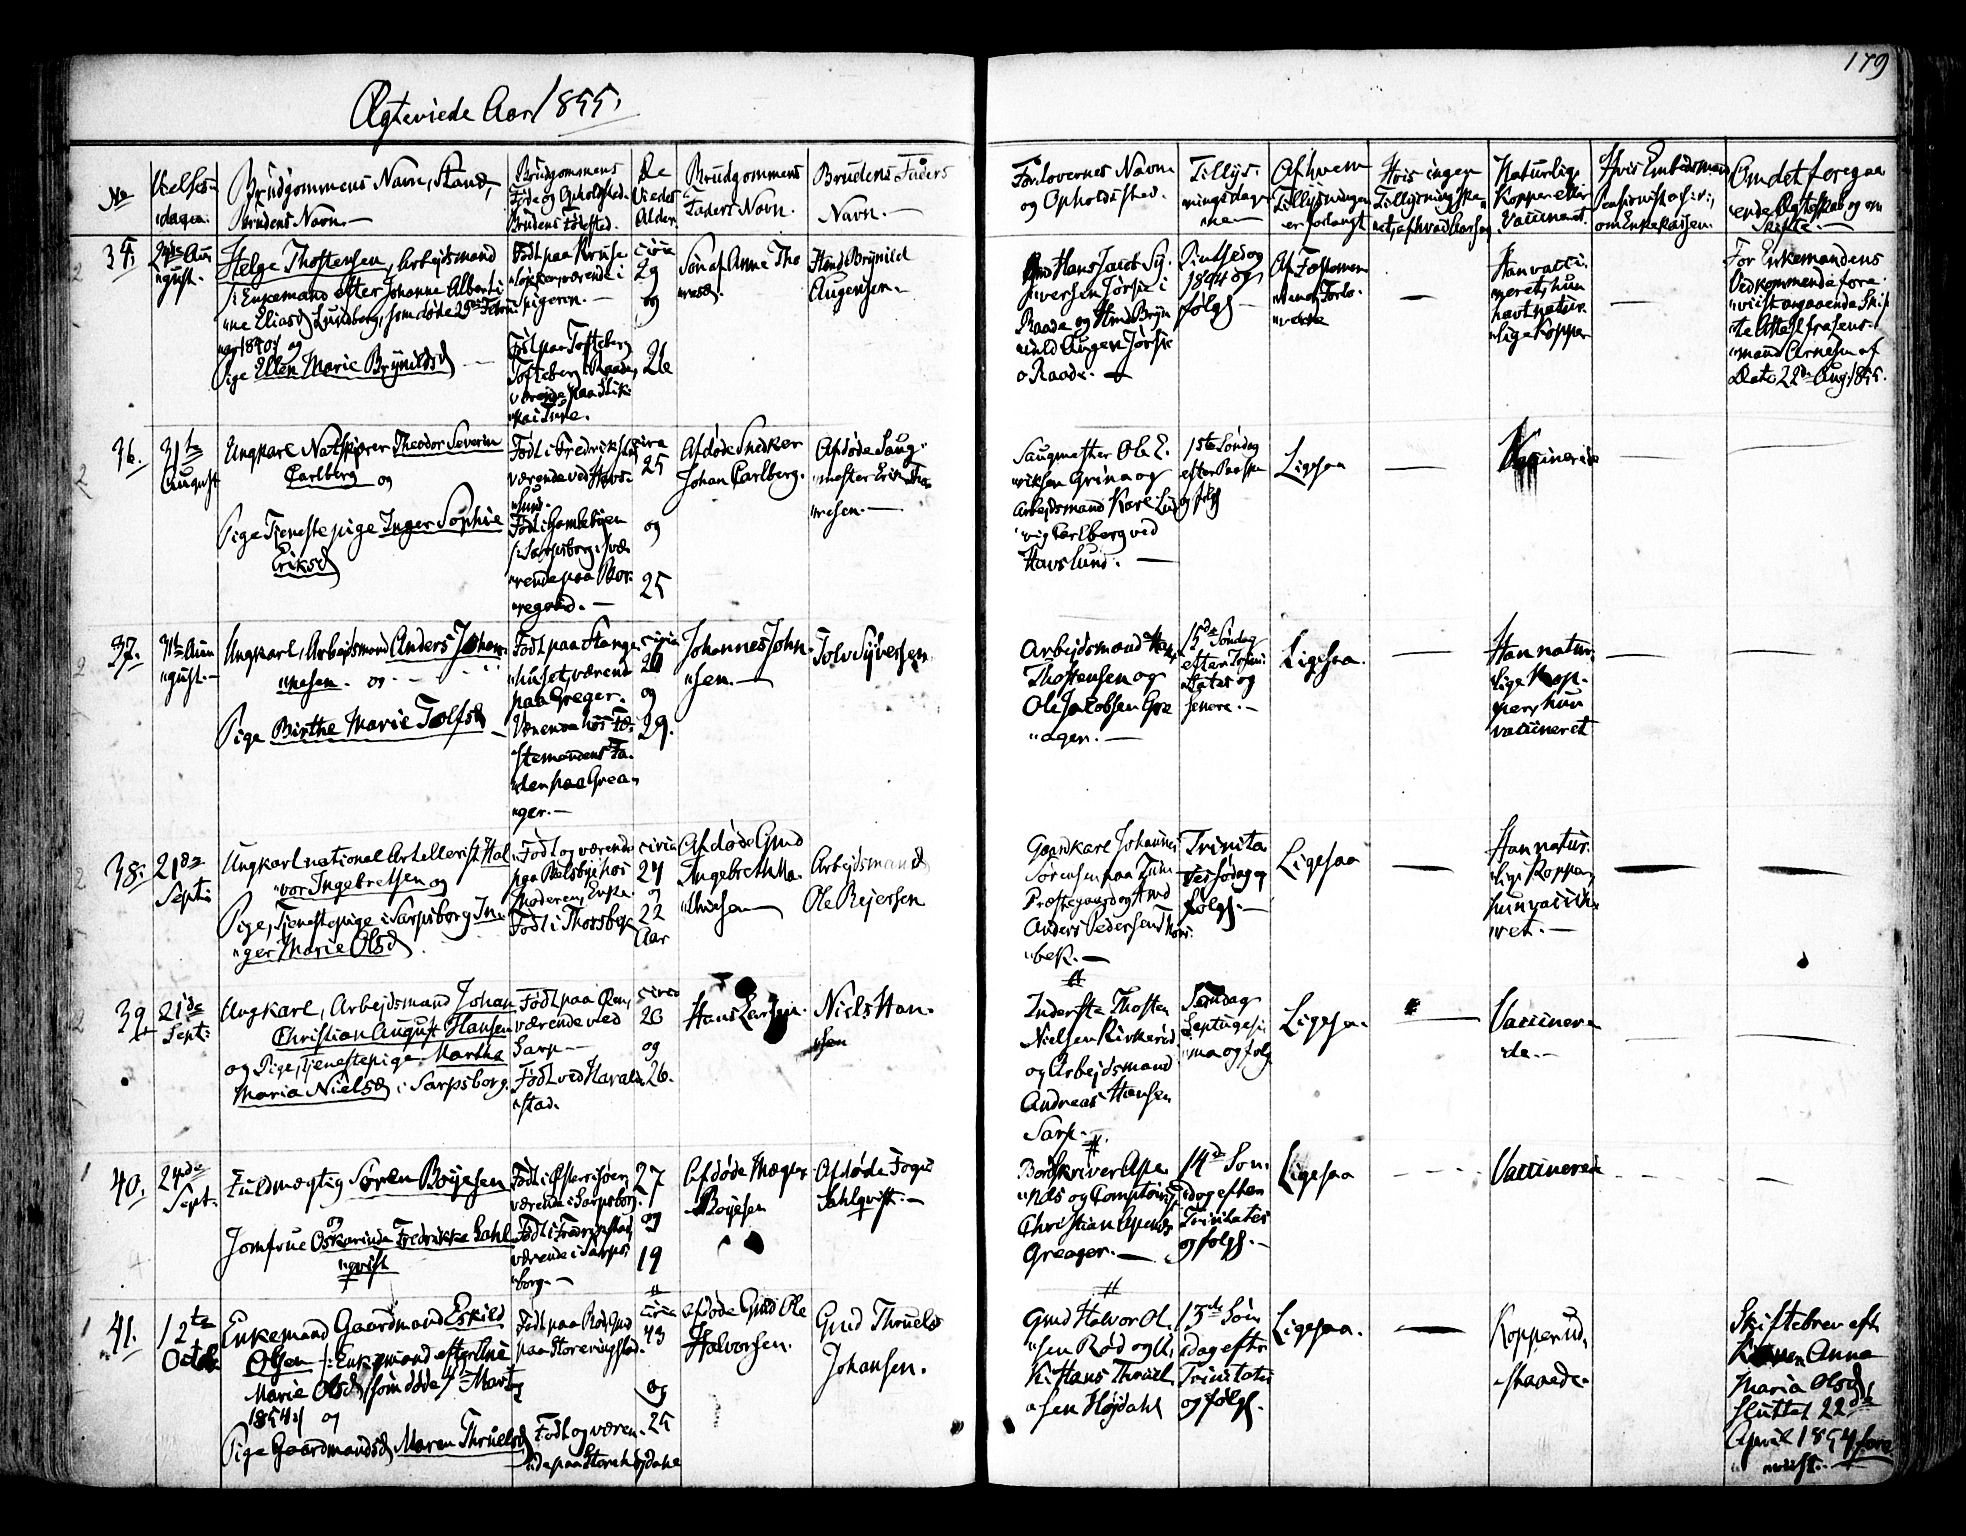 179
Ægteviede Aar 1855.
No
Vielses-
dagen.
Brudgommens Navn, Stand,
Brudens Navn.—
Brudgommens
Føde og Opholdsted.
Brudens Fødested.
De
Viedes
Alder.
Brudgommens
Faders Navn.
Brudens Faders
Navn.—
Forlovernes Navn
og Opholdsted.
Tillys-
ningsdage-
ne—
Af hvem
Tillysningen
er forlangt
Hvis ingen
Naturlige
Kopper eller
Vaccineret.
Hvis Embedsmand
om Enkekassen.
Om det foregaa
ende Ægteskab og om
Skifte.—
35.
"gust.
Helge Thostensen, Arbejdsmand
Enkemand efter Johanne Alberti
"ne Eliasd Lundberg, som døde 29de Febru
og
Pige Ellen Marie Brynildsd —
Født paa
værende i
Født paa Tofteberg
Tofteberg i Raade,
værende paa
i Tune.
circa
29
og
26
Søn af Anne Tho
Brynild
Augensen.
Hans Jacob Sy-
versen i
Raade og
o Raade.—
1844 og
følgd
"verne
—
Han vacci-
neret, hun
havt natur-
"lige Kopper
—
For Enkemandens
Vedkommende fore-
"te Attest fra Lens-
"mand Arnesen af
Dato 22de Aug. 1855.
36.
31te
August
Ungkarl Theodor Severin
Carlberg og
Pige Tjenestepige Inger Sophie
Eriksd
Født i Fredrikstad
værende ved Hafs-
"lund.
Født i Gamlebyen
i Sarpsborg, væ-
"rende paa Bor-
"regaard.—
circa
25
og
25
Afdøde Snedker
Johan Carlberg.
Afdøde Saug-
"mester Erik
"resen.—
Saugmester Ole E-
"riksen Grina og
Arbejdsmand Karl Lud
"vig Carlberg ved
Havslund.—
1ste Søndag
efter Paaske
og følgd
Ligesaa
—
Vaccinerede
37.
31te Au
"gust.—
Ungkarl, Arbejdsmand Anders Johan-
"nesen. og
Pige Birthe Marie Tolfsd
Født paa Stange
"huset, værende
paa Greger.
Værende hos Fæ-
"stemandens Fa-
"der paa Grea-
"ger.—
circa
og
29.
Johannes John-
"sen.—
Tolv Syversen
Arbejdsmand Hans
Thostensen og
Ole Jacobsen Gre
"ager.—
15de Søndag
efter Trini-
"tatis og
senere.—
Ligesaa.
Han natur-
"lige Kop-
per, hun
vaccineret
38.
21de
Sept:
Ungkarl national Artellerist Hal-
"vor Ingebretsen og
Pige, Tjenestepige i Sarpsborg In-
"ger Marie Olsd
Født og værende
paa Valsbye hos
Moderen, Enke
Født i Thorsbek
circa
24
og
22
Aar
Afdøde Gmd
Ingebreth Ma-
Arbejdsmand
Ole Rejersen
Gaardkarl Johannes
Sørensen paa Tune
Præstegaard og Gmd
Anders Pedersen Thors-
"bek.—
Trinita
tes Sødag og
følgd.—
Ligesaa
Han natur-
lige Kopper,
hun vaccine-
"ret.—
39.
21de
Sept:
Ungkarl, Arbejdsmand Johan
Christian August Hansen
og Pige, Tjenestepige Martha
Maria Nielsd i Sarpsborg.
Født paa
værende ved
Sarp—
Født ved Harald-
"stad.
circa
og
26.
Hans Larsen.
Niels Han-
"sen
Inderste Thosten
Nielsen Kirkerud
og Arbejdsmand
Andreas Hansen
Sarp.
Søndag
Septuagesi-
"ma og følg
Ligesaa.
Vaccinere-
de.—
40.
24de
Sept:
Fuldmægtig Søren Boyesen
og
Jomfrue Oskarinde Fredrikke Sahl
"qvist
værende i Sarpsborg.
Født i Fredrikstad
værende i Sarps-
"borg—
27
og
19
Afdøde Mægler
Boyesen
Afdøde Foged
Sahlqvist.—
Byskriver Ape-
"næs og Comptoirist
Christian Apenæs
Greager.—
14de Søn-
dag efter
Trinitates
og følgd.—
Ligesaa
Vaccinerede
41.
12te
Octob.
Enkemand Gaardmand Eskild
Olsen Enkemand efter Anne
Marie Olsd, som døde 1ste Marts
1854 og
Pige Gaardmandsd Maren Thruelsd
Født paa Rød Gmd
Født og væren-
"de paa Store Højdahl
circa
43
og
25
Afdøde Gmd Ole
Halvorsen.
Gmd Thruels
Johansen.
Gmd Halvor Ol-
"sen Rød og U.
K. Hans Thruel-
"sen Højdahl
13de Søn-
dag efter
Trinitatis
og følgd.
Ligesaa.
Kopperne ud-
"staaede.
Skiftebrev efter
Konen Anna
Maria Olsd,
sluttet 22de
April 1854 fore
"viist.—